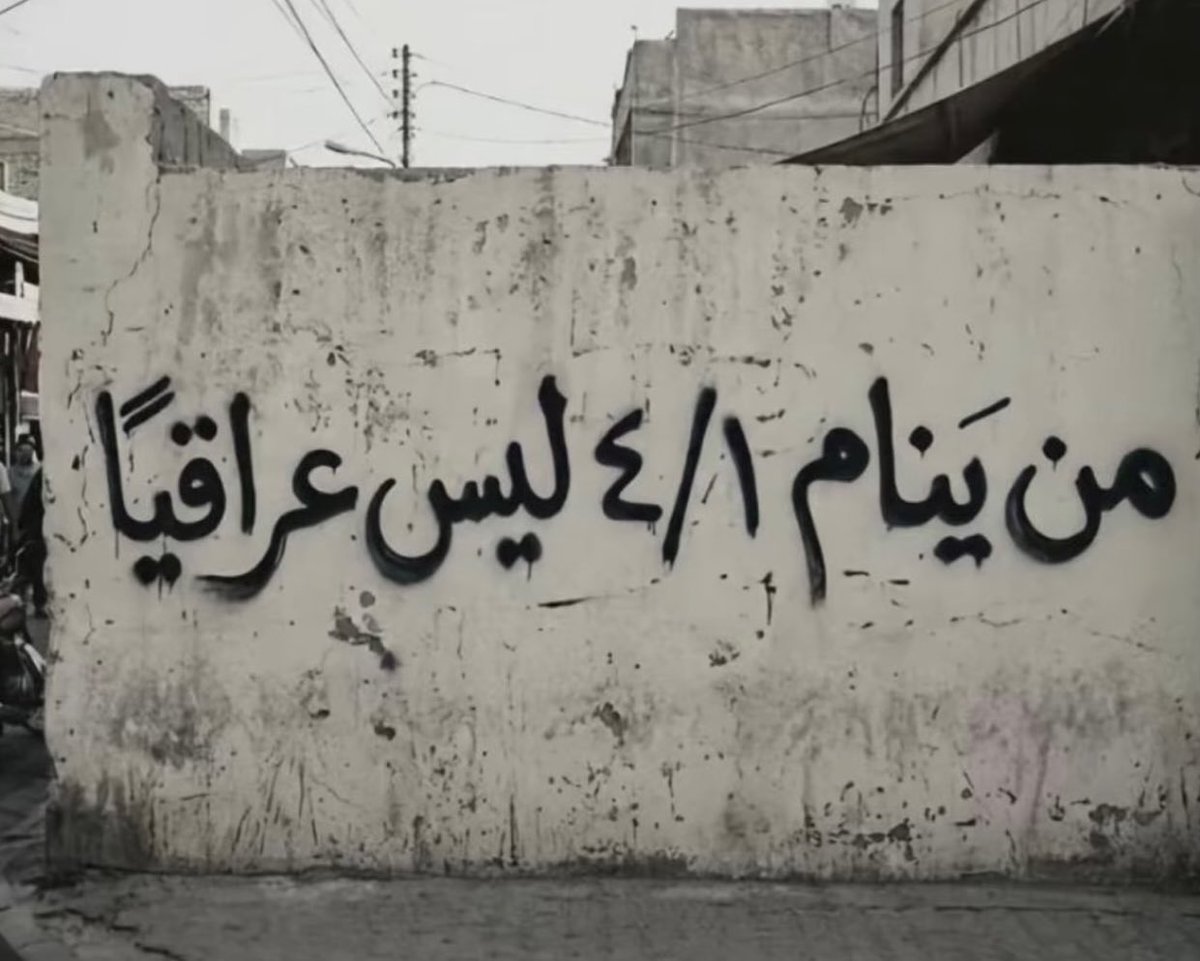 من يَنام ١/٤ ليس عراقياً